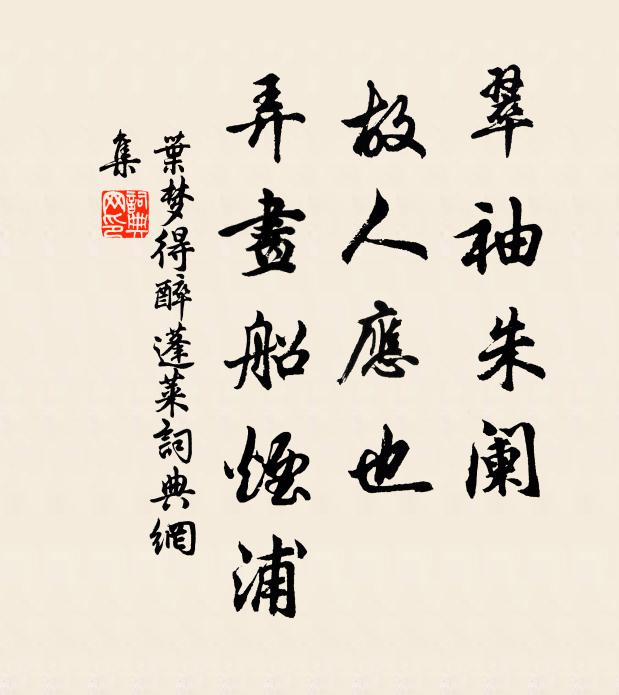 翠袖朱阑
故人應也
弄畫船煙浦
葉梦得醉蓬莱詞典網
集
詞典
网印